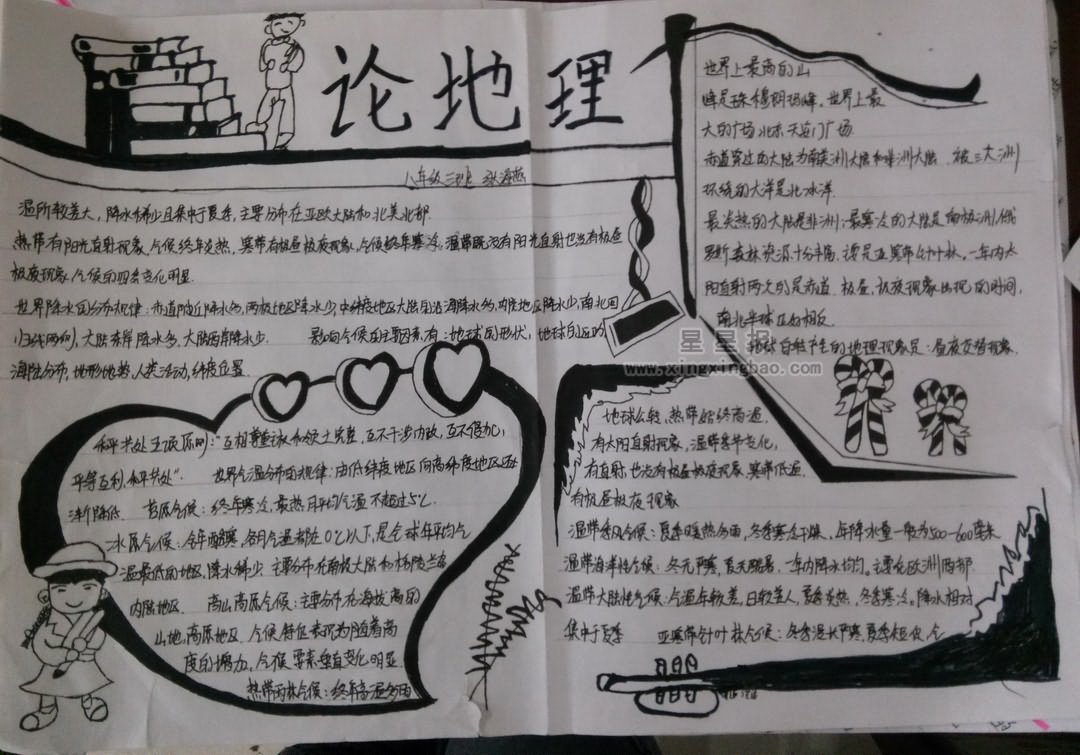 论地理
八年级三班
温所较差大，降水稀少且集中于夏季，主要分布在亚欧大陆和北美北部.
热带有阳光直射现象，气候终年炎热，寒带有极昼极夜现象，气候终年寒冷，温带既没有阳光直射也没有极昼
极夜现象，气候的四季变化明显.
世界降水的分布规律：赤道附近降水多，两极地区降水少，中纬度地区大陆的沿海降水多，内陆地区降水少，南北回
归线两侧，大陆东岸降水多，大陆西岸降水少. 影响气候的主要因素有：地球的形状，地球的
海陆分布，地形地势，人类活动，纬度位置.
和平共处五项原则："互相尊重 和领土完整，互不干涉内政，互不侵犯，
平等互利，和平共处". 世界气温分布的规律：由低纬度地区向高纬度地区逐
渐降低. 苔原气候：终年寒冷，最热月平均气温不超过5℃.
冰原气候：全年酷寒，各月气温都在0℃以下，是全球年平均气
温最低的地区，降水稀少. 主要分布在南极大陆和格陵兰岛
内陆地区. 高山高原气候：主要分布在海拔高的
山地，高原地区. 气候特征表现为随着高
度的增加，气候要素垂直变化明显.
热带雨林气候：终年高温多雨
世界上最高的山
峰是珠穆朗玛峰。世界上最
大的广场北京天安门广场.
赤道穿过的大陆为南美洲大陆和非洲大陆. 被三大洲
环绕的大洋是北冰洋.
最炎热的大陆是非洲；最寒冷的大陆是南极洲；俄
罗斯森林资源十分丰富，主要是亚寒带针叶林。一年内太
阳直射两次的是赤道. 极昼、极夜现象出现的时间，
南北半球正好相反.
地球自转产生的地理现象是：昼夜交替现象.
星星报
www.xingxingbao.com
地球么转，热带始终高温.
有太阳直射现象，温带季节变化，
有直射，也没有极昼极夜现象，寒带低温.
有极昼极夜现象
温带季风气候：夏季暖热多雨，冬季寒冷干燥，年降水量一般为500-600毫米
温带海洋性气候：冬无严寒，夏无酷暑，一年内降水均匀。主要在欧洲西部
温带大陆性气候：气温年较差，日较差大，夏季炎热，冬季寒冷。降水相对
集中于夏季 亚寒带针叶林气候：冬季漫长严寒，夏季短促，气